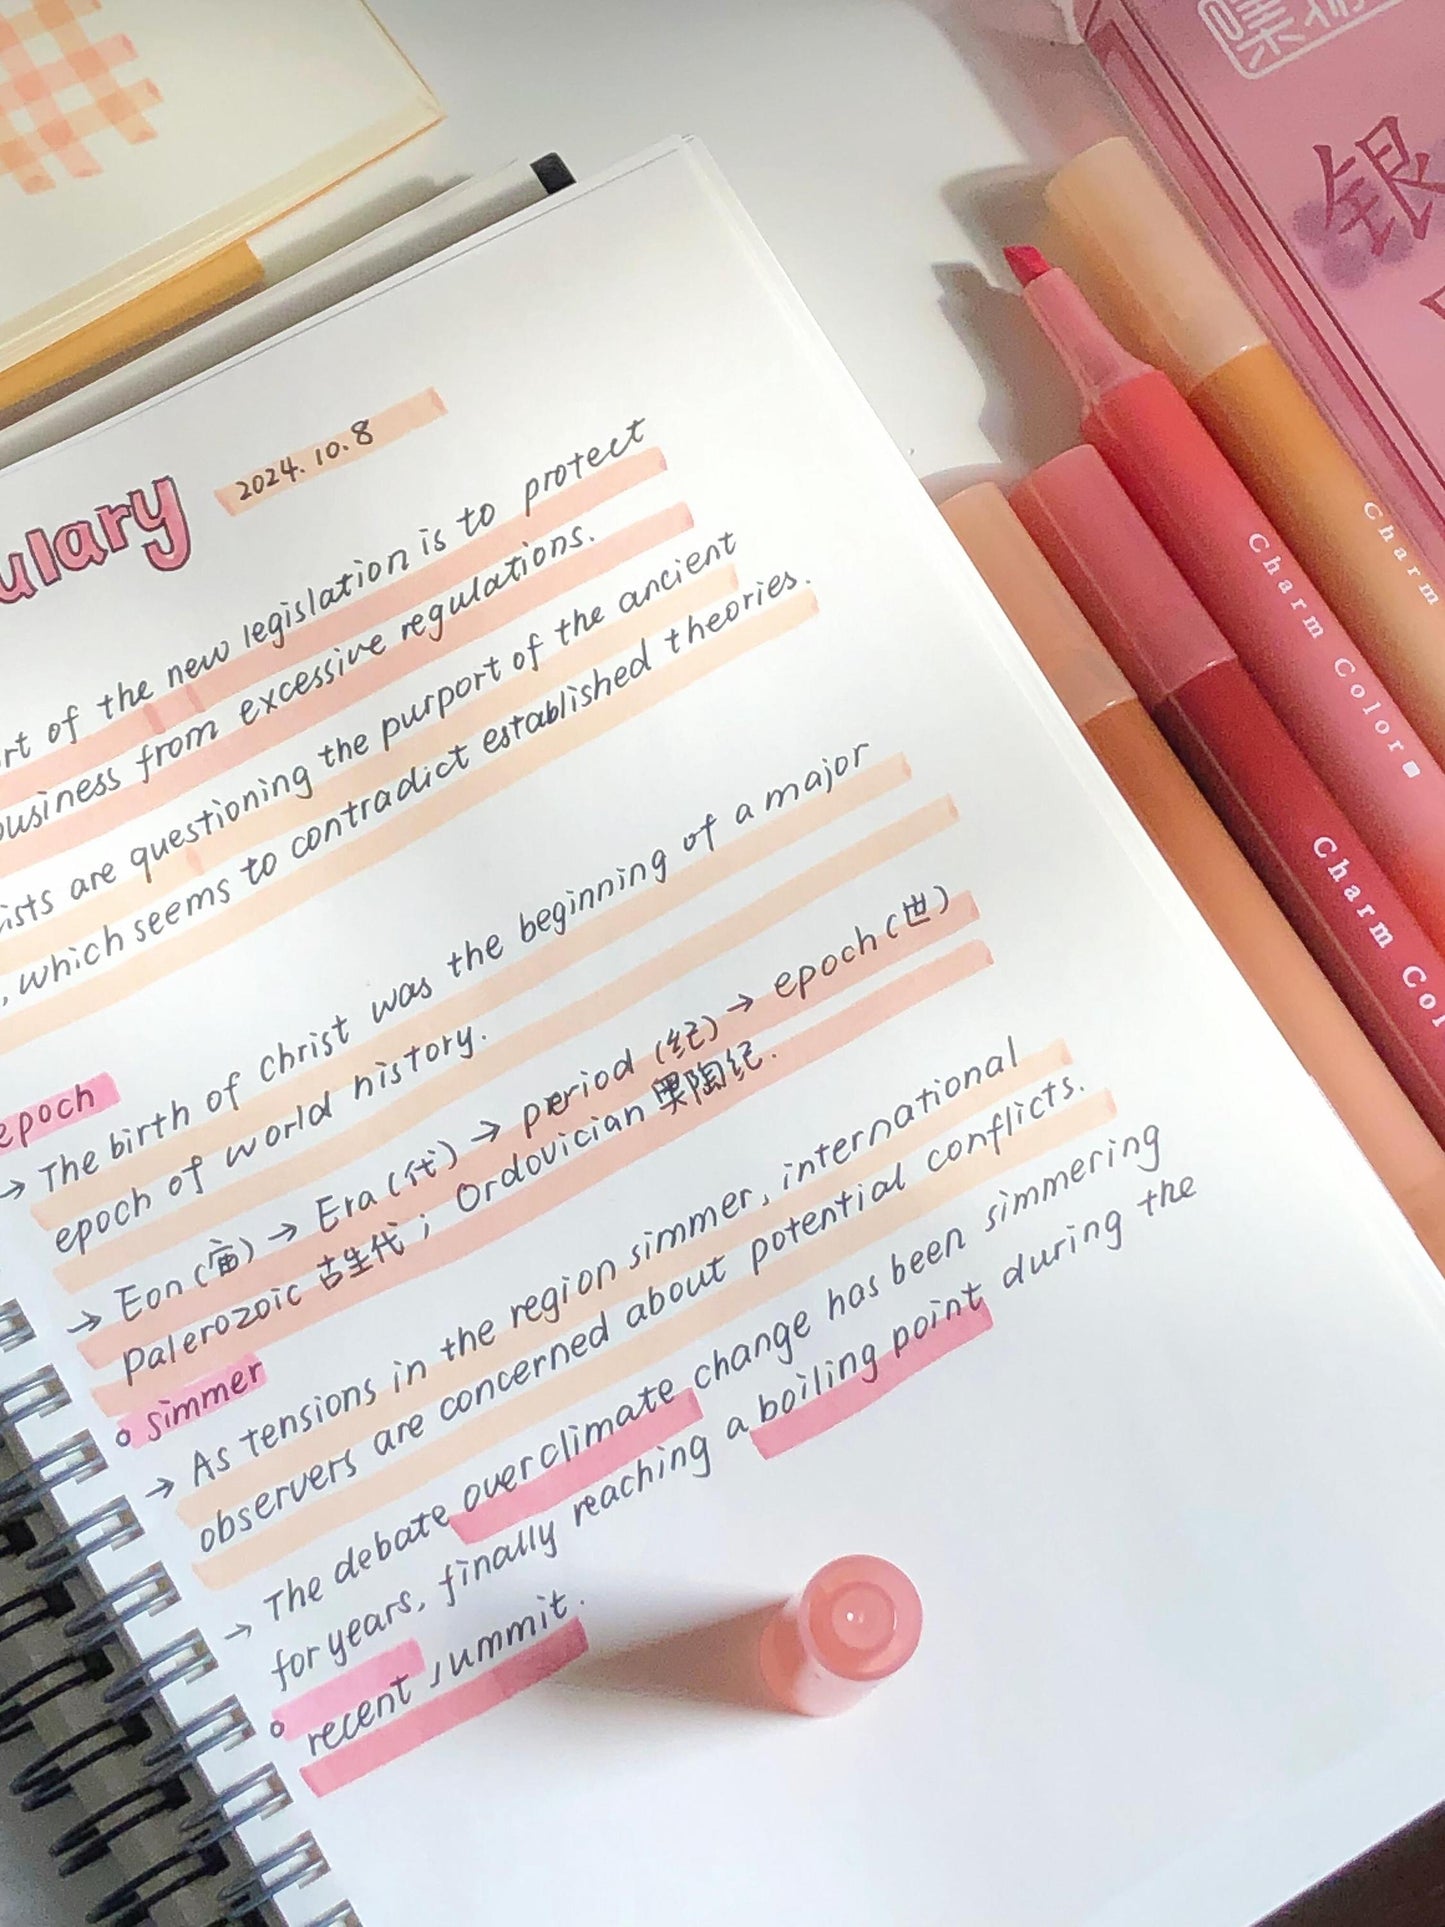 ulary
2024.10.8
rt of the new legislation is to protect
business from excessive regulations.
ists are questioning the purport of the ancient
, which seems to contradict established theories.
epoch
→ The birth of christ was the beginning of a major
epoch of world history.
→ Eon (宙) → Era (代) → period (纪) → epoch (世)
Palerozoic 古生代 ; Ordovician 奥陶纪.
simmer
→ As tensions in the region simmer, international
observers are concerned about potential conflicts.
→ The debate over climate change has been simmering
for years, finally reaching a boiling point during the
recent summit.
银
Charm
Charm Color
Charm Col